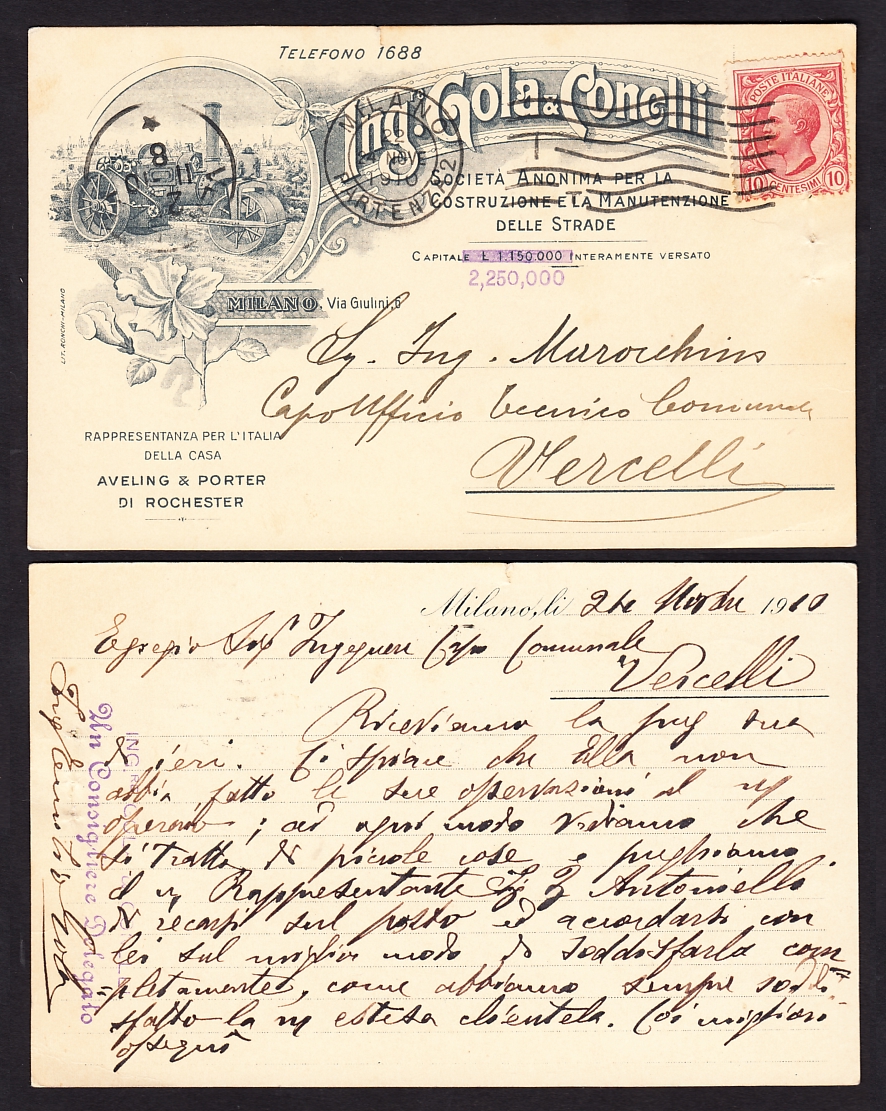 TELEFONO 1688
Ing. Gola & Conelli
SOCIETÀ ANONIMA PER LA
COSTRUZIONE E LA MANUTENZIONE
DELLE STRADE
CAPITALE L. 1.150.000 INTERAMENTE VERSATO
2,250,000
MILANO. Via Giulini, 6
LIT. RONCHI-MILANO
POSTE ITALIANE
10 CENTESIMI 10
MILANO
NOVE
1910
PARTENZA
8
11
Sg. Ing. Marocchino
Capo Ufficio Tecnico Comunale
Vercelli
RAPPRESENTANZA PER L'ITALIA
DELLA CASA
AVELING & PORTER
DI ROCHESTER
Milano, li 24 1910
Egregio Ingegnere Capo Comunale
Vercelli
Riceviamo la preg sua
di ieri. Ci spiace che Ella non
abbia fatto le sue osservazioni al
operaio; ad ogni modo vediamo che
si tratta di piccole cose e preghiamo
il n/ Rappresentante Sig Antoniello
di recarsi sul posto ed accordarsi con
lei sul miglior modo di soddisfarla com
pletamente, come abbiamo sempre soddi
sfatto la n/ estesa clientela. Coi migliori
ossequi
ING.RI GOLA & CONELLI
Un Consigliere Delegato